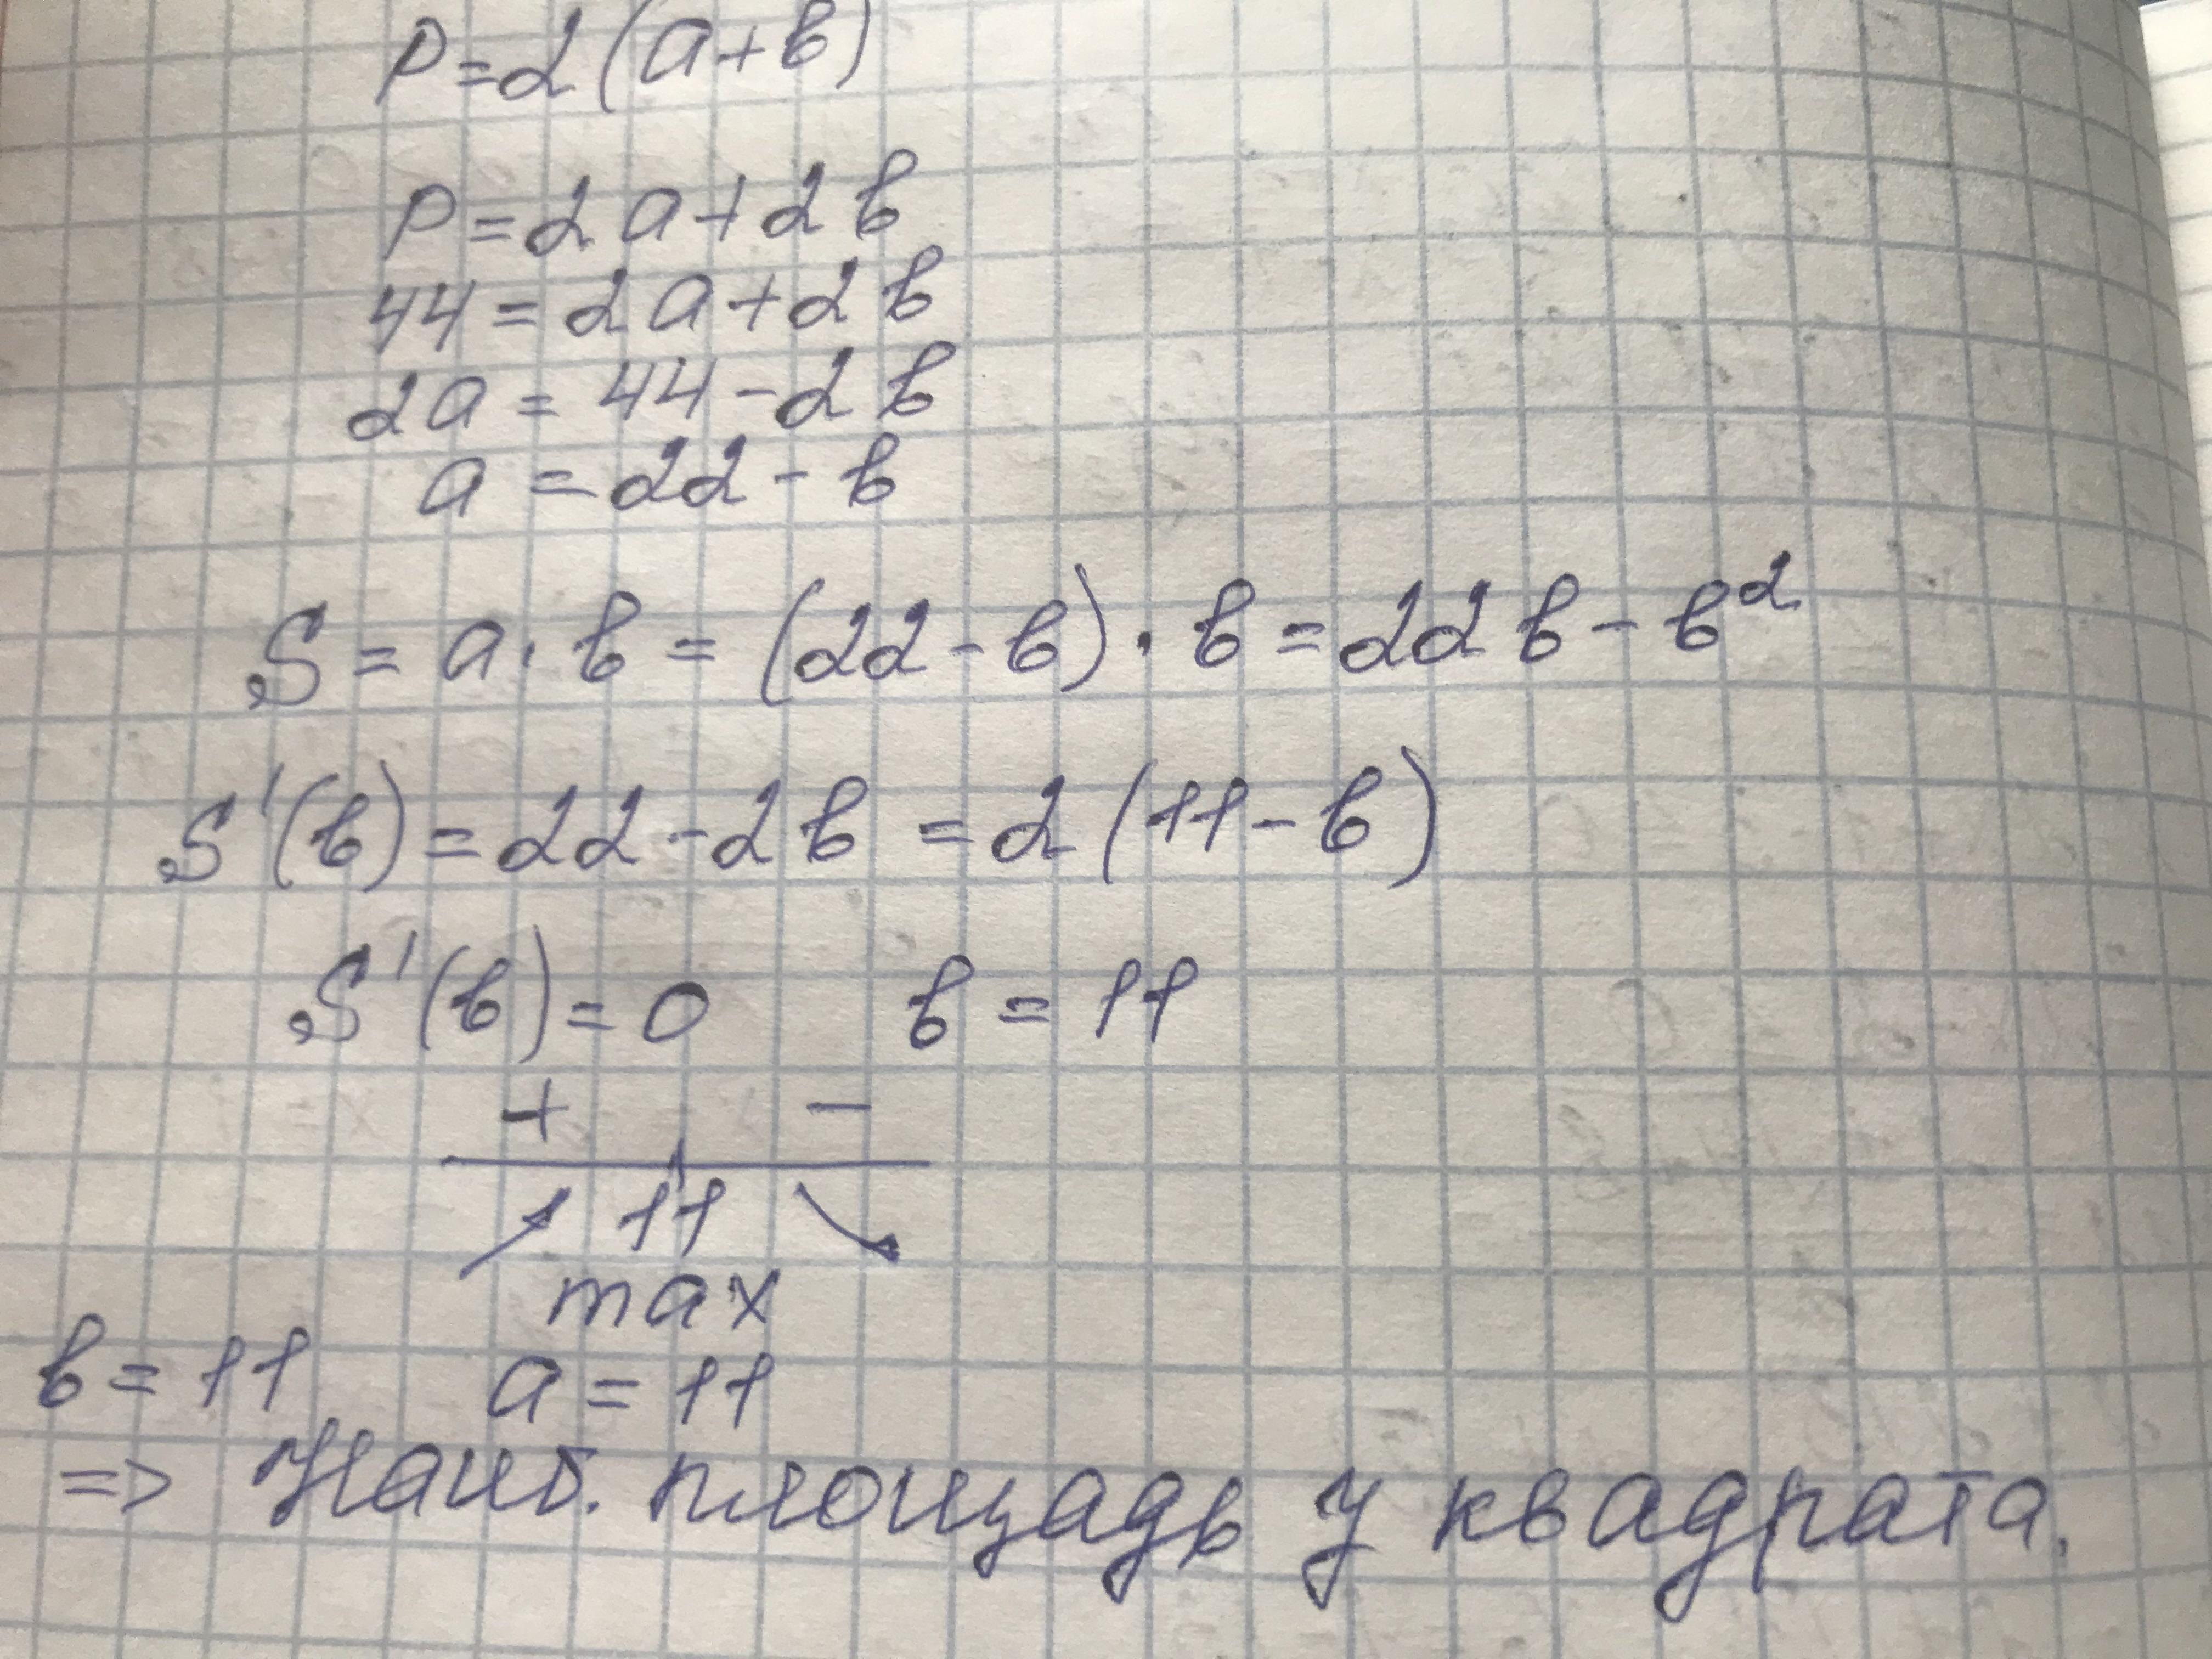 P=2(a+в)
P=2a+2в
44=2a+2в
2a=44-2в
a=22-в
S=a·в=(22-в)·в=22в-в²
S'(в)=22-2в=2(11-в)
S'(в)=0 в=11
+ -
11
max
в=11 a=11
=> Наиб. площадь у квадрата.